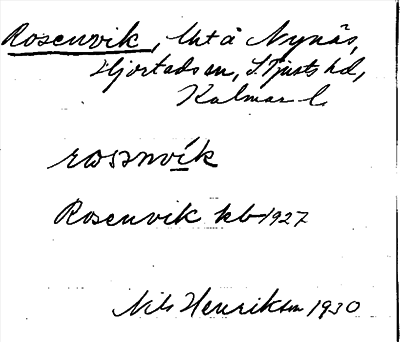 Rosenvik, Uht å Nynäs,
Hjorteds sn, S. Tjusts hd,
Kalmar l.
rosnvik
Rosenvik kb 1927
Nils Henriksson 1930